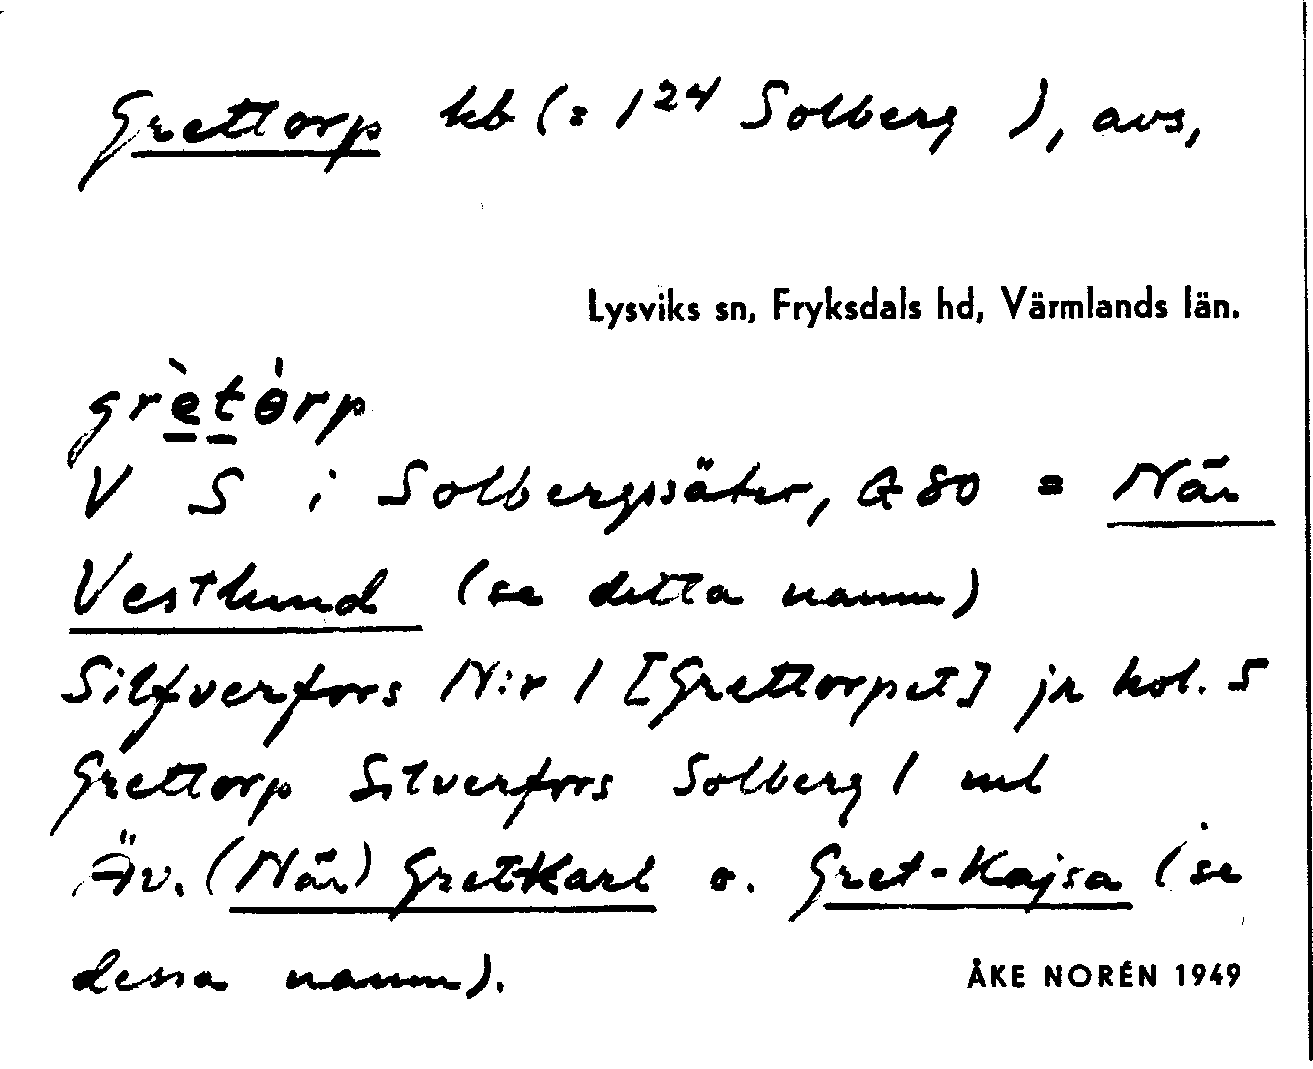 Grettorp hb (= 1²⁴ Solberg ), avs,
Lysviks sn, Fryksdals hd, Värmlands län.
grètórp
V S i Solbergssäter, G 80 = När
Vestlund (se detta namn)
Silfverfors N:r 1 [Grettorpet] jr kol. 5
Grettorp Silverfors Solberg 1 ml
Äv. (När) GretKarl o. Gret-Kajsa (se
dessa namn).
ÅKE NORÉN 1949